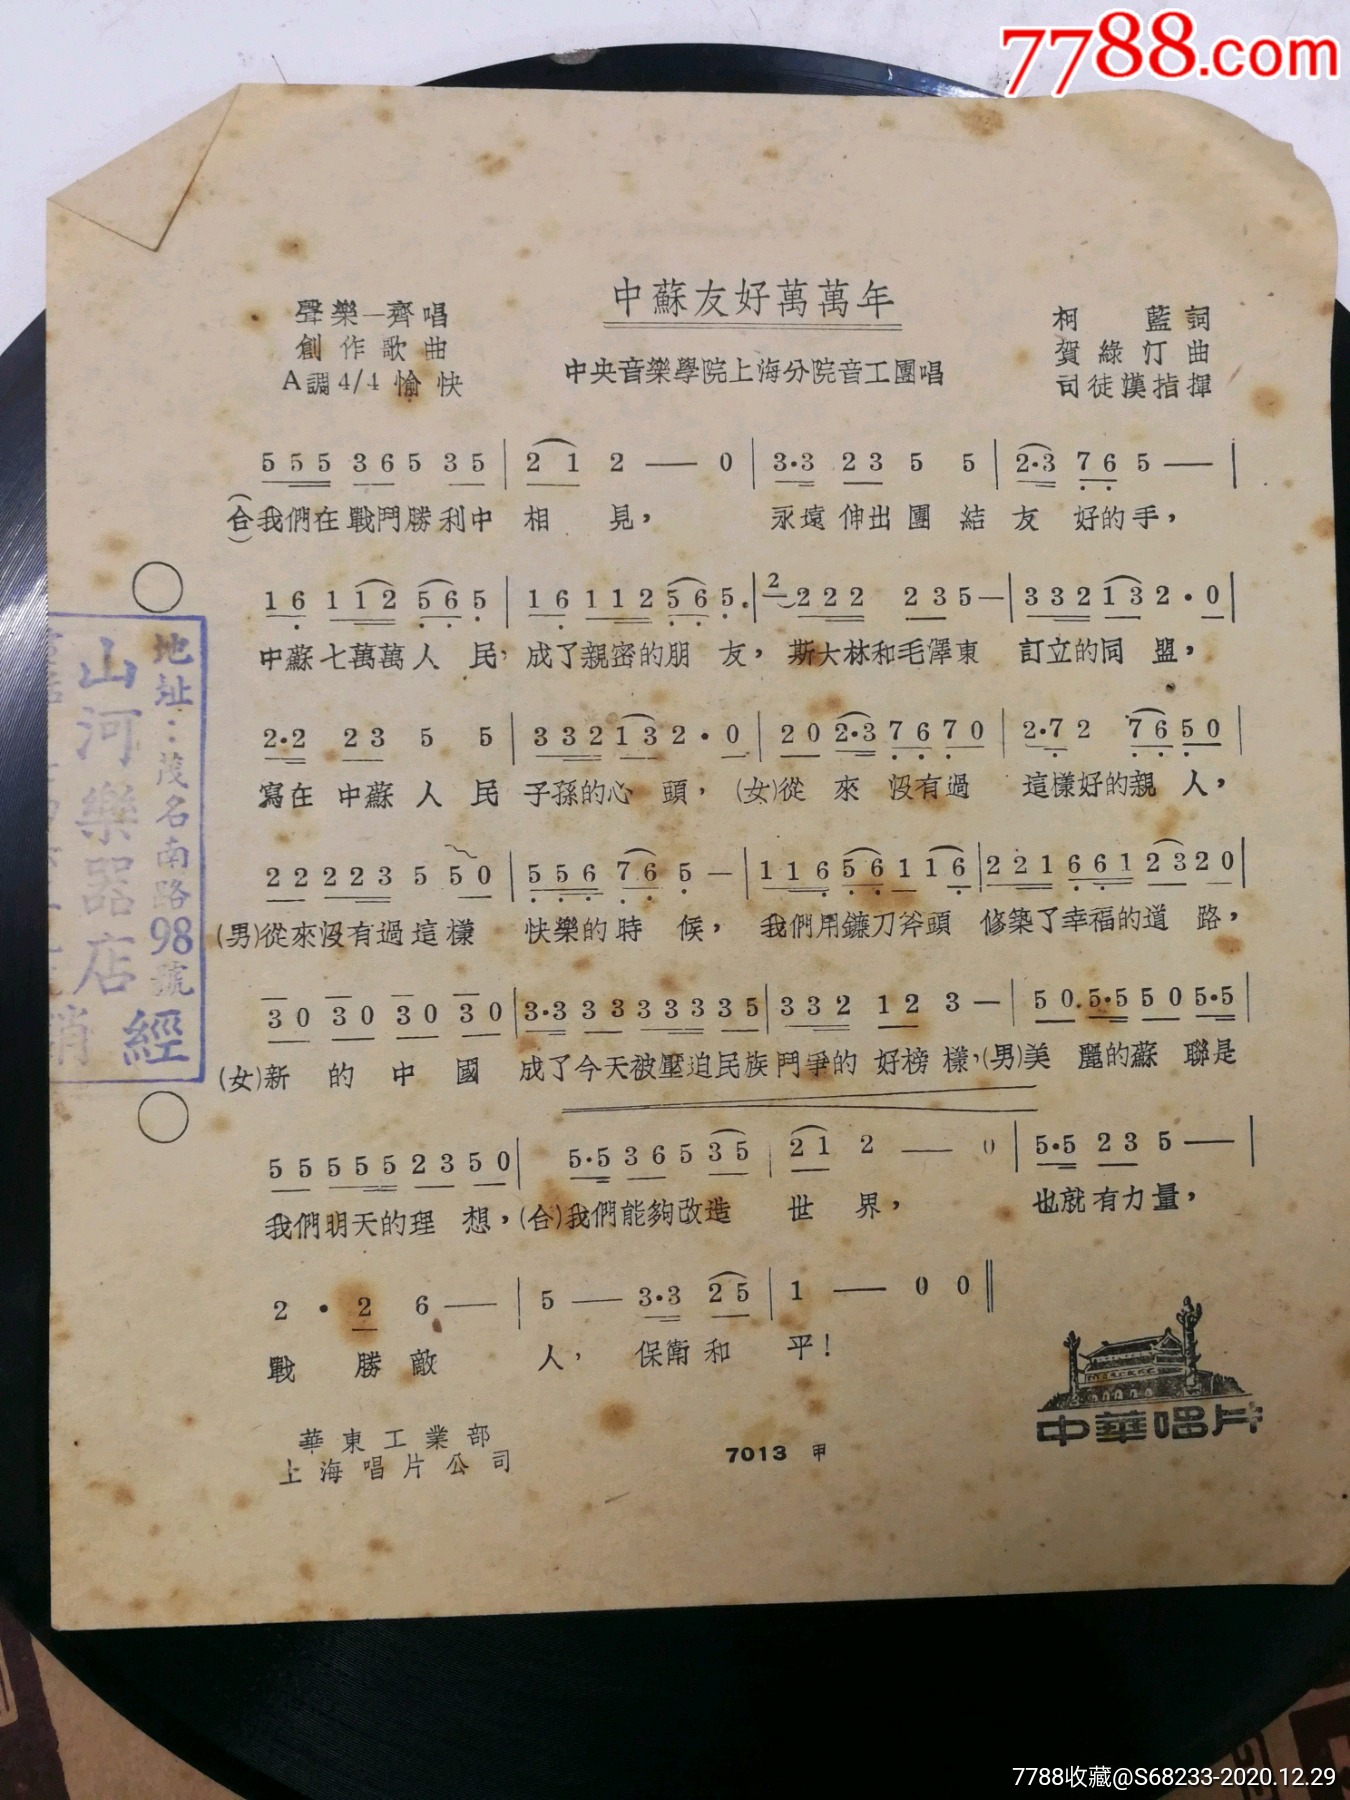 7788.com
中蘇友好萬萬年
聲樂—齊唱
創作歌曲
A調4/4 愉快
中央音樂學院上海分院音工團唱
柯藍詞
賀綠汀曲
司徒漢指揮
5 5 5 3 6 5 3 5 | 2 1 2 — 0 | 3·3 2 3 5 5 | 2·3 7 6 5 — |
(合)我們在戰鬥勝利中 相 見， 永遠伸出團結友 好的手，
1 6 1 1 2 5 6 5 | 1 6 1 1 2 5 6 5. | 2 2 2 2 2 3 5 — | 3 3 2 1 3 2 · 0 |
中蘇七萬萬人 民，成了親密的朋 友，斯大林和毛澤東 訂立的同 盟，
2·2 2 3 5 5 | 3 3 2 1 3 2 · 0 | 2 0 2·3 7 6 7 0 | 2·7 2 7 6 5 0 |
寫在 中蘇 人 民 子孫的心 頭，(女)從 來 沒有過 這樣好的親 人，
2 2 2 2 3 5 5 0 | 5 5 6 7 6 5 — | 1 1 6 5 6 1 1 6 | 2 2 1 6 6 1 2 3 2 0 |
(男)從來沒有過這樣 快樂的時 候， 我們用鐮刀斧頭 修築了幸福的道 路，
3 0 3 0 3 0 3 0 | 3·3 3 3 3 3 3 3 5 | 3 3 2 1 2 3 — | 5 0 5·5 5 0 5·5 |
(女)新 的 中 國 成了今天被壓迫民族鬥爭的 好榜樣，(男)美 麗的蘇 聯是
5 5 5 5 5 2 3 5 0 | 5·5 3 6 5 3 5 | 2 1 2 — 0 | 5·5 2 3 5 — |
我們明天的理 想，(合)我們能夠改造 世 界， 也就有力量，
2 · 2 6 — | 5 — 3·3 2 5 | 1 — 0 0 ‖
戰 勝敵 人， 保衛和 平！
華東工業部
上海唱片公司
7013 甲
中華唱片
地址：茂名南路98號
山河樂器店
經
銷
7788收藏@S68233-2020.12.29